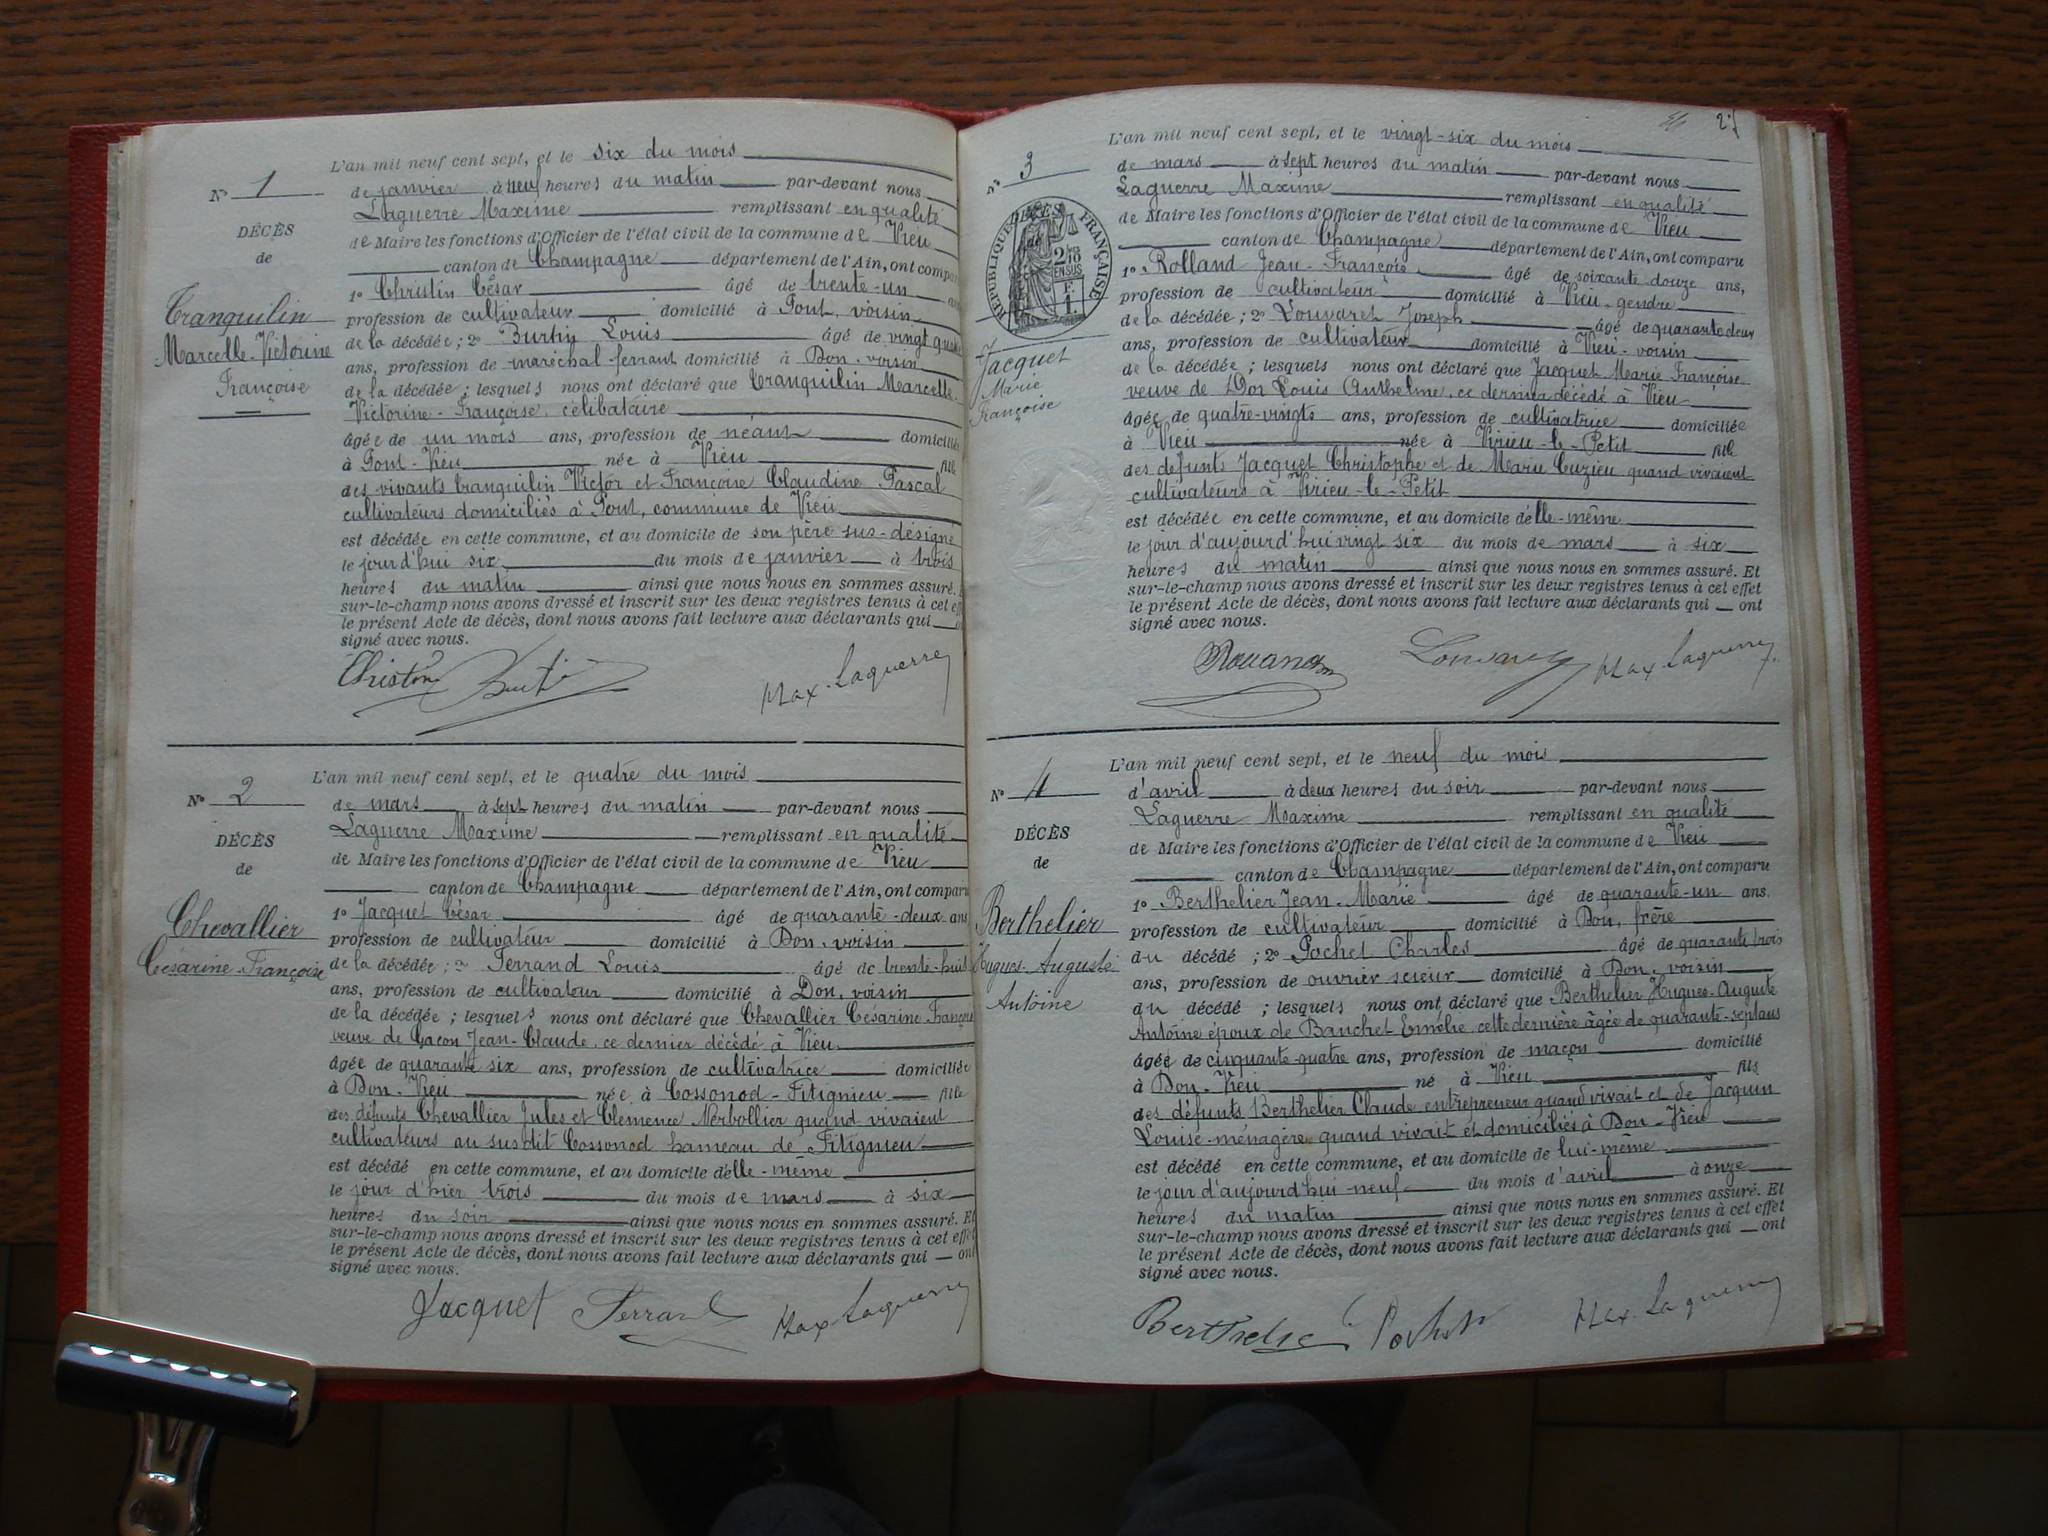 L'an mil neuf cent sept, et le six du mois
N° 1
de janvier à neuf heures du matin par-devant nous
Laguerre Maxime remplissant en qualité
DÉCÈS
de Maire les fonctions d'Officier de l'état civil de la commune de Vieu
de
canton de Champagne département de l'Ain, ont comparu
1° Christin César âgé de trente-un
Tranquilin
profession de cultivateur domicilié à Pont, voisin
Marcelle-Victorine
de la décédée; 2° Burtin Louis âgé de vingt
ans, profession de maréchal-ferrant domicilié à Don-voisin
Françoise
de la décédée; lesquels nous ont déclaré que Tranquilin Marcelle
Victorine-Françoise, célibataire
âgée de un mois ans, profession de néant domiciliée
à Pont-Vieu née à Vieu fille
des vivants Tranquilin Victor et Françoise Claudine Pascal
cultivateurs domiciliés à Pont, commune de Vieu
est décédée en cette commune, et au domicile de son père sus-désigné
le jourd'hui six du mois de janvier à trois
heures du matin ainsi que nous nous en sommes assuré.
sur-le-champ nous avons dressé et inscrit sur les deux registres tenus à cet
le présent Acte de décès, dont nous avons fait lecture aux déclarants qui
signé avec nous.
Christin Burtin Max Laguerre
L'an mil neuf cent sept, et le quatre du mois
N° 2
de mars à sept heures du matin par-devant nous
Laguerre Maxime remplissant en qualité
DÉCÈS
de Maire les fonctions d'Officier de l'état civil de la commune de Vieu
de
canton de Champagne département de l'Ain, ont comparu
1° Jacquet César âgé de quarante-deux ans
Chevallier
profession de cultivateur domicilié à Don, voisin
Césarine-Françoise
de la décédée; 2° Ferrand Louis âgé de trente-huit
ans, profession de cultivateur domicilié à Don, voisin
de la décédée; lesquels nous ont déclaré que Chevallier Césarine-Françoise
veuve de Jean-Claude, ce dernier décédé à Vieu
âgée de quarante six ans, profession de cultivatrice domiciliée
à Don-Vieu née à Cossonod-Fitignieu fille
des défunts Chevallier Jules et Clémence Nerbollier quand vivaient
cultivateurs au susdit Cossonod hameau de Fitignieu
est décédé en cette commune, et au domicile d'elle-même
le jour d'hier trois du mois de mars à six
heures du soir ainsi que nous nous en sommes assuré. Et
sur-le-champ nous avons dressé et inscrit sur les deux registres tenus à cet effet
le présent Acte de décès, dont nous avons fait lecture aux déclarants qui ont
signé avec nous.
Jacquet Ferrand Max Laguerre
27
L'an mil neuf cent sept, et le vingt-six du mois
N° 3
de mars à sept heures du matin par-devant nous
Laguerre Maxime remplissant en qualité
DÉCÈS
de
RÉPUBLIQUE FRANÇAISE
2/10 EN SUS
F. 1.
de Maire les fonctions d'Officier de l'état civil de la commune de Vieu
canton de Champagne département de l'Ain, ont comparu
1° Rolland Jean-François âgé de soixante douze ans,
profession de cultivateur domicilié à Vieu-gendre
de la décédée; 2° Louvaret Joseph âgé de quarante deux
Jacquet
ans, profession de cultivateur domicilié à Vieu-voisin
Marie
de la décédée; lesquels nous ont déclaré que Jacquet Marie Françoise
Françoise
veuve de Dor Louis Anthelme, ce dernier décédé à Vieu
âgée de quatre-vingts ans, profession de cultivatrice domiciliée
à Vieu née à Virieu-le-Petit fille
des défunts Jacquet Christophe et de Marie Cuzieu quand vivaient
cultivateurs à Virieu-le-Petit
est décédée en cette commune, et au domicile d'elle-même
le jour d'aujourd'hui vingt six du mois de mars à six
heures du matin ainsi que nous nous en sommes assuré. Et
sur-le-champ nous avons dressé et inscrit sur les deux registres tenus à cet effet
le présent Acte de décès, dont nous avons fait lecture aux déclarants qui ont
signé avec nous.
Louvaret Max Laguerre
L'an mil neuf cent sept, et le neuf du mois
N° 4
d'avril à deux heures du soir par-devant nous
Laguerre Maxime remplissant en qualité
DÉCÈS
de Maire les fonctions d'Officier de l'état civil de la commune de Vieu
de
canton de Champagne département de l'Ain, ont comparu
1° Berthelier Jean-Marie âgé de quarante-un ans.
Berthelier
profession de cultivateur domicilié à Don, frère
Hugues-Auguste
du décédé; 2° Pochet Charles âgé de quarante trois
ans, profession de ouvrier scieur domicilié à Don, voisin
Antoine
du décédé; lesquels nous ont déclaré que Berthelier Hugues-Auguste
Antoine époux de Banchet Emélie, cette dernière âgée de quarante-sept ans
âgée de cinquante-quatre ans, profession de maçon domicilié
à Don-Vieu né à Vieu fils
des défunts Berthelier Claude entrepreneur quand vivait et de Jacquin
Louise-ménagère quand vivait et domiciliés à Don-Vieu
est décédé en cette commune, et au domicile de lui-même
le jour d'aujourd'hui neuf du mois d'avril à onze
heures du matin ainsi que nous nous en sommes assuré. Et
sur-le-champ nous avons dressé et inscrit sur les deux registres tenus à cet effet
le présent Acte de décès, dont nous avons fait lecture aux déclarants qui ont
signé avec nous.
Berthelier Pochet Max Laguerre